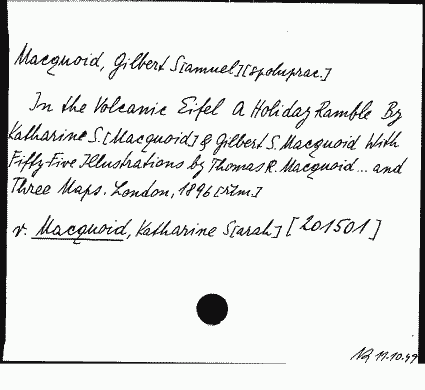 Macquoid, Gilbert S[amuel] [spoluprac.]
In the Volcanic Eifel A Holiday Ramble By
Katharine S. [Macquoid] & Gilbert S. Macquoid With
Fifty-Five Illustrations by Thomas R. Macquoid ... and
Three Maps. London, 1896 [rtm.]
v. Macquoid, Katharine S[arah] [201501]
11.10.49